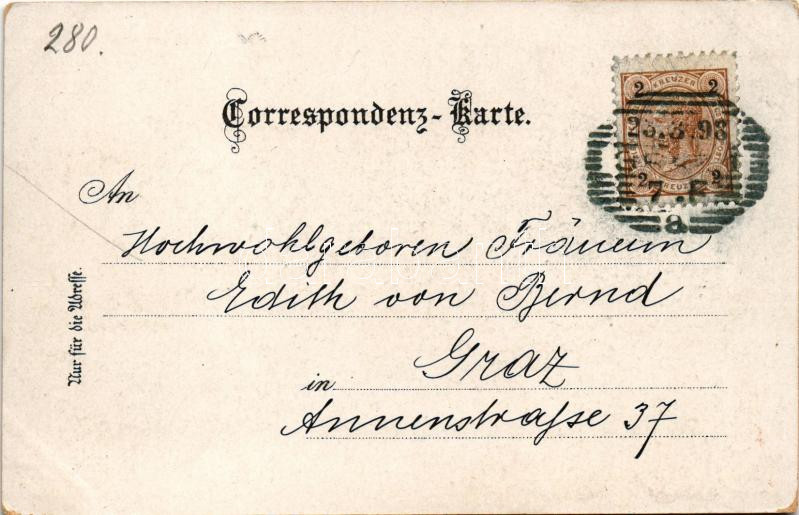 280.
Correspondenz-Karte.
2 KREUZER 2
23.3.98
2 KREUZER 2
7.
a
An
Hochwohlgeboren Fräulein
Edith von Bernd
Graz
in
Annenstraſse 37
Nur für die Adresse.